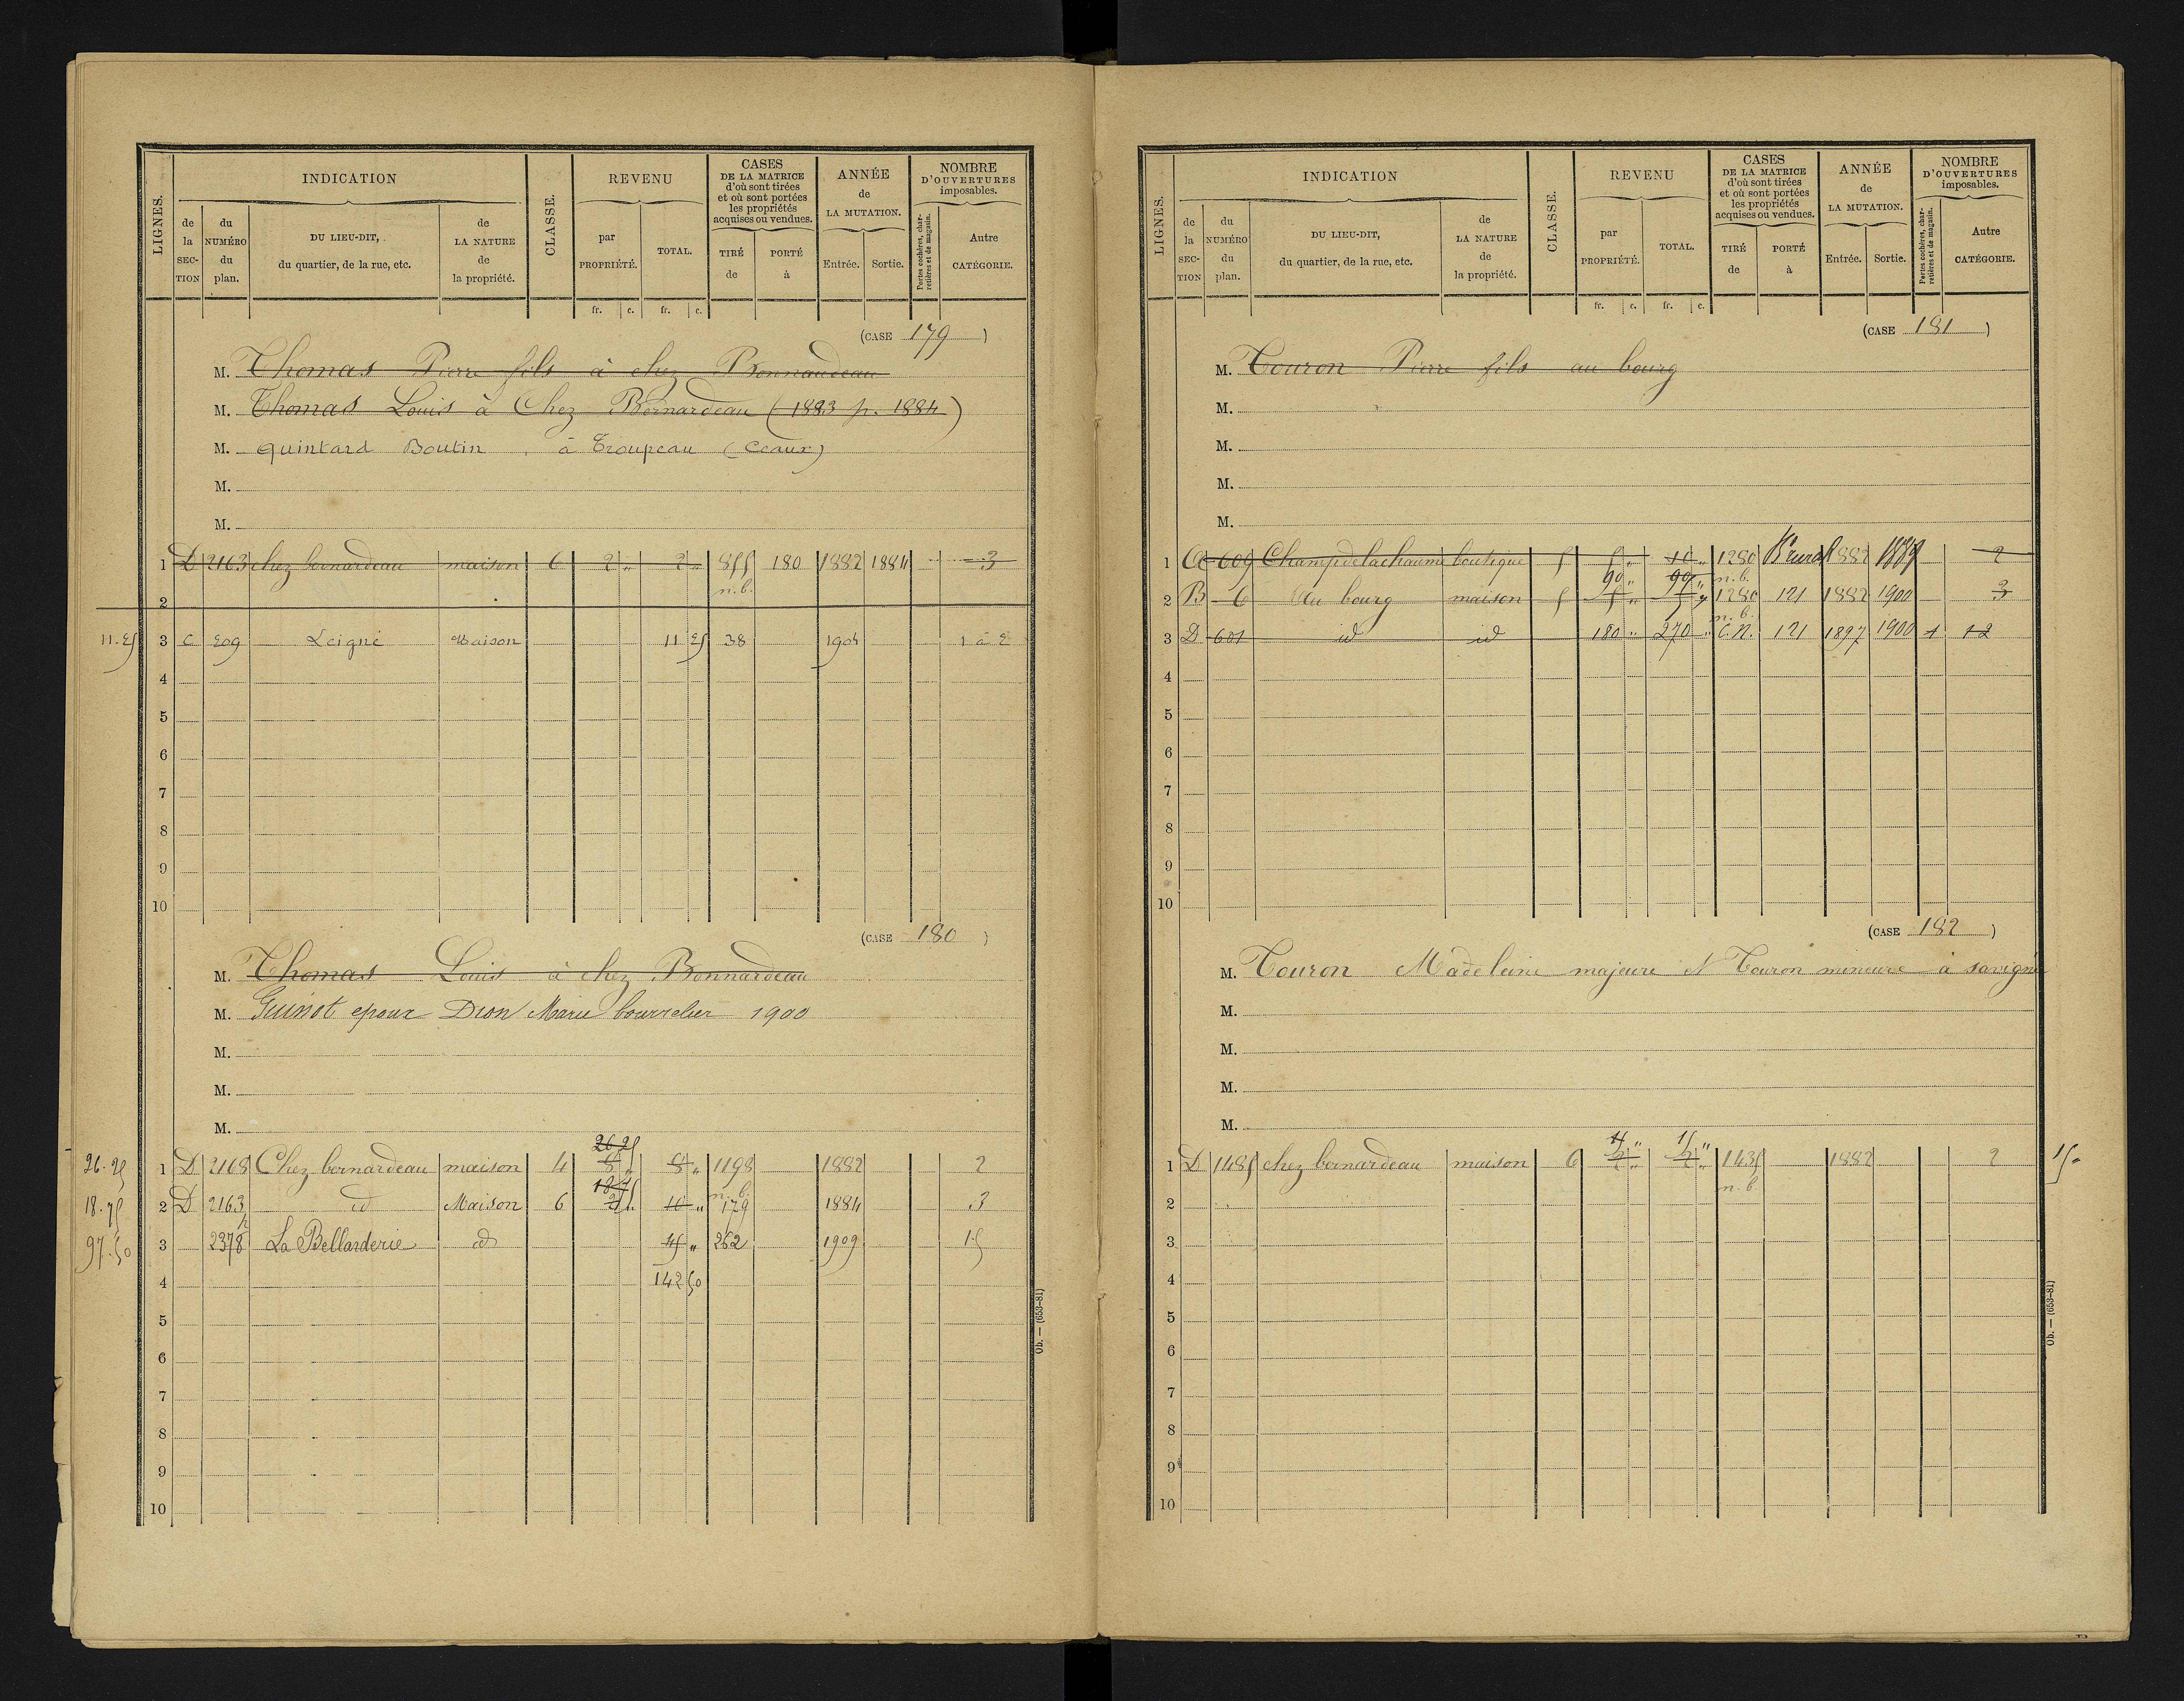 LIGNES. INDICATION CLASSE. REVENU CASES DE LA MATRICE d'où sont tirées et où sont portées les propriétés acquises ou vendues. ANNÉE de LA MUTATION. NOMBRE D'OUVERTURES imposables.
de la SECTION du NUMÉRO du plan. DU LIEU-DIT, du quartier, de la rue, etc. de LA NATURE de la propriété. par PROPRIÉTÉ. TOTAL. TIRÉ de PORTÉ à Entrée. Sortie. Portes cochères, charretières et de magasin. Autre CATÉGORIE.
fr. c. fr. c.
(CASE 179)
M. Thomas Pierre fils à chez Bonnaudeau
M. Thomas Louis à Chez Bernardeau (1883 p. 1884)
M. Quintard Boutin, à Troupeau (Ceaux)
M.
M.
1 D 2163 chez bernardeau maison 6 2 " 2 " 855 180 1882 1884 3
n.b.
2
11.25 3 C 209 Leigné Maison 11 25 38 1904 1 à 2
4
5
6
7
8
9
10
(CASE 180)
M. Thomas Louis à chez Bonnardeau
M. Guinot epoux Dion Marie bourrelier 1900
M.
M.
M.
26 25
26.25 1 D 2168 Chez bernardeau maison 4 8 " 8 " 1198 1882 2
18 75 n.b.
18.75 2 D 2163 id Maison 6 2 10 " 179 1884 3
97.50 3 2378 La Bellarderie id 45 " 262 1909 15
4 142 50
5
6
7
8
9
10
Ob. — (653-81)
LIGNES. INDICATION CLASSE. REVENU CASES DE LA MATRICE d'où sont tirées et où sont portées les propriétés acquises ou vendues. ANNÉE de LA MUTATION. NOMBRE D'OUVERTURES imposables.
de la SECTION du NUMÉRO du plan. DU LIEU-DIT, du quartier, de la rue, etc. de LA NATURE de la propriété. par PROPRIÉTÉ. TOTAL. TIRÉ de PORTÉ à Entrée. Sortie. Portes cochères, charretières et de magasin. Autre CATÉGORIE.
fr. c. fr. c.
(CASE 181)
M. Touron Pierre fils au bourg
M.
M.
M.
M.
1 A 609 Champ de la chaume boutique 5 5 " 10 " 1280 Bt rural 1882 1889 2
90 " 90 " n.b.
2 B 6 Au bourg maison 5 5 " 5 " 1280 121 1882 1900 3
n.b.
3 D 601 id id 180 " 270 " C.N. 121 1897 1900 1 12
4
5
6
7
8
9
10
(CASE 182)
M. Touron Madeleine majeure et Touron mineure à savigné
M.
M.
M.
M.
15 " 15 "
1 D 1485 chez bernardeau maison 6 2 " 2 " 1435 1882 2 15 "
n.b.
2
3
4
5
6
7
8
9
10
Ob. — (653-81)